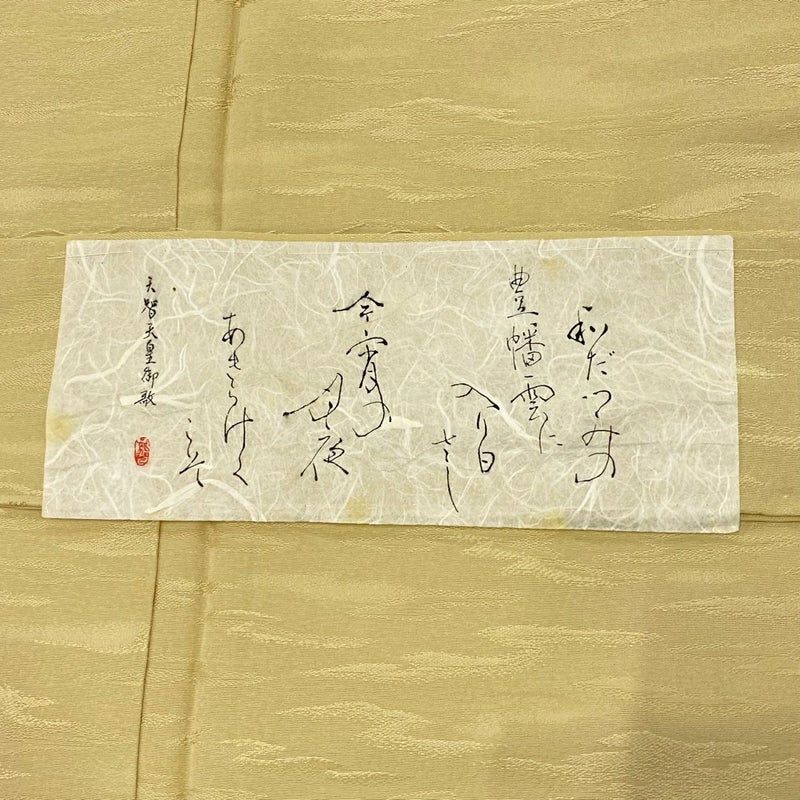 和だつみの
豊幡雲に
入り日
さし
今宵の
月夜
あきらけく
こそ
天智天皇御歌